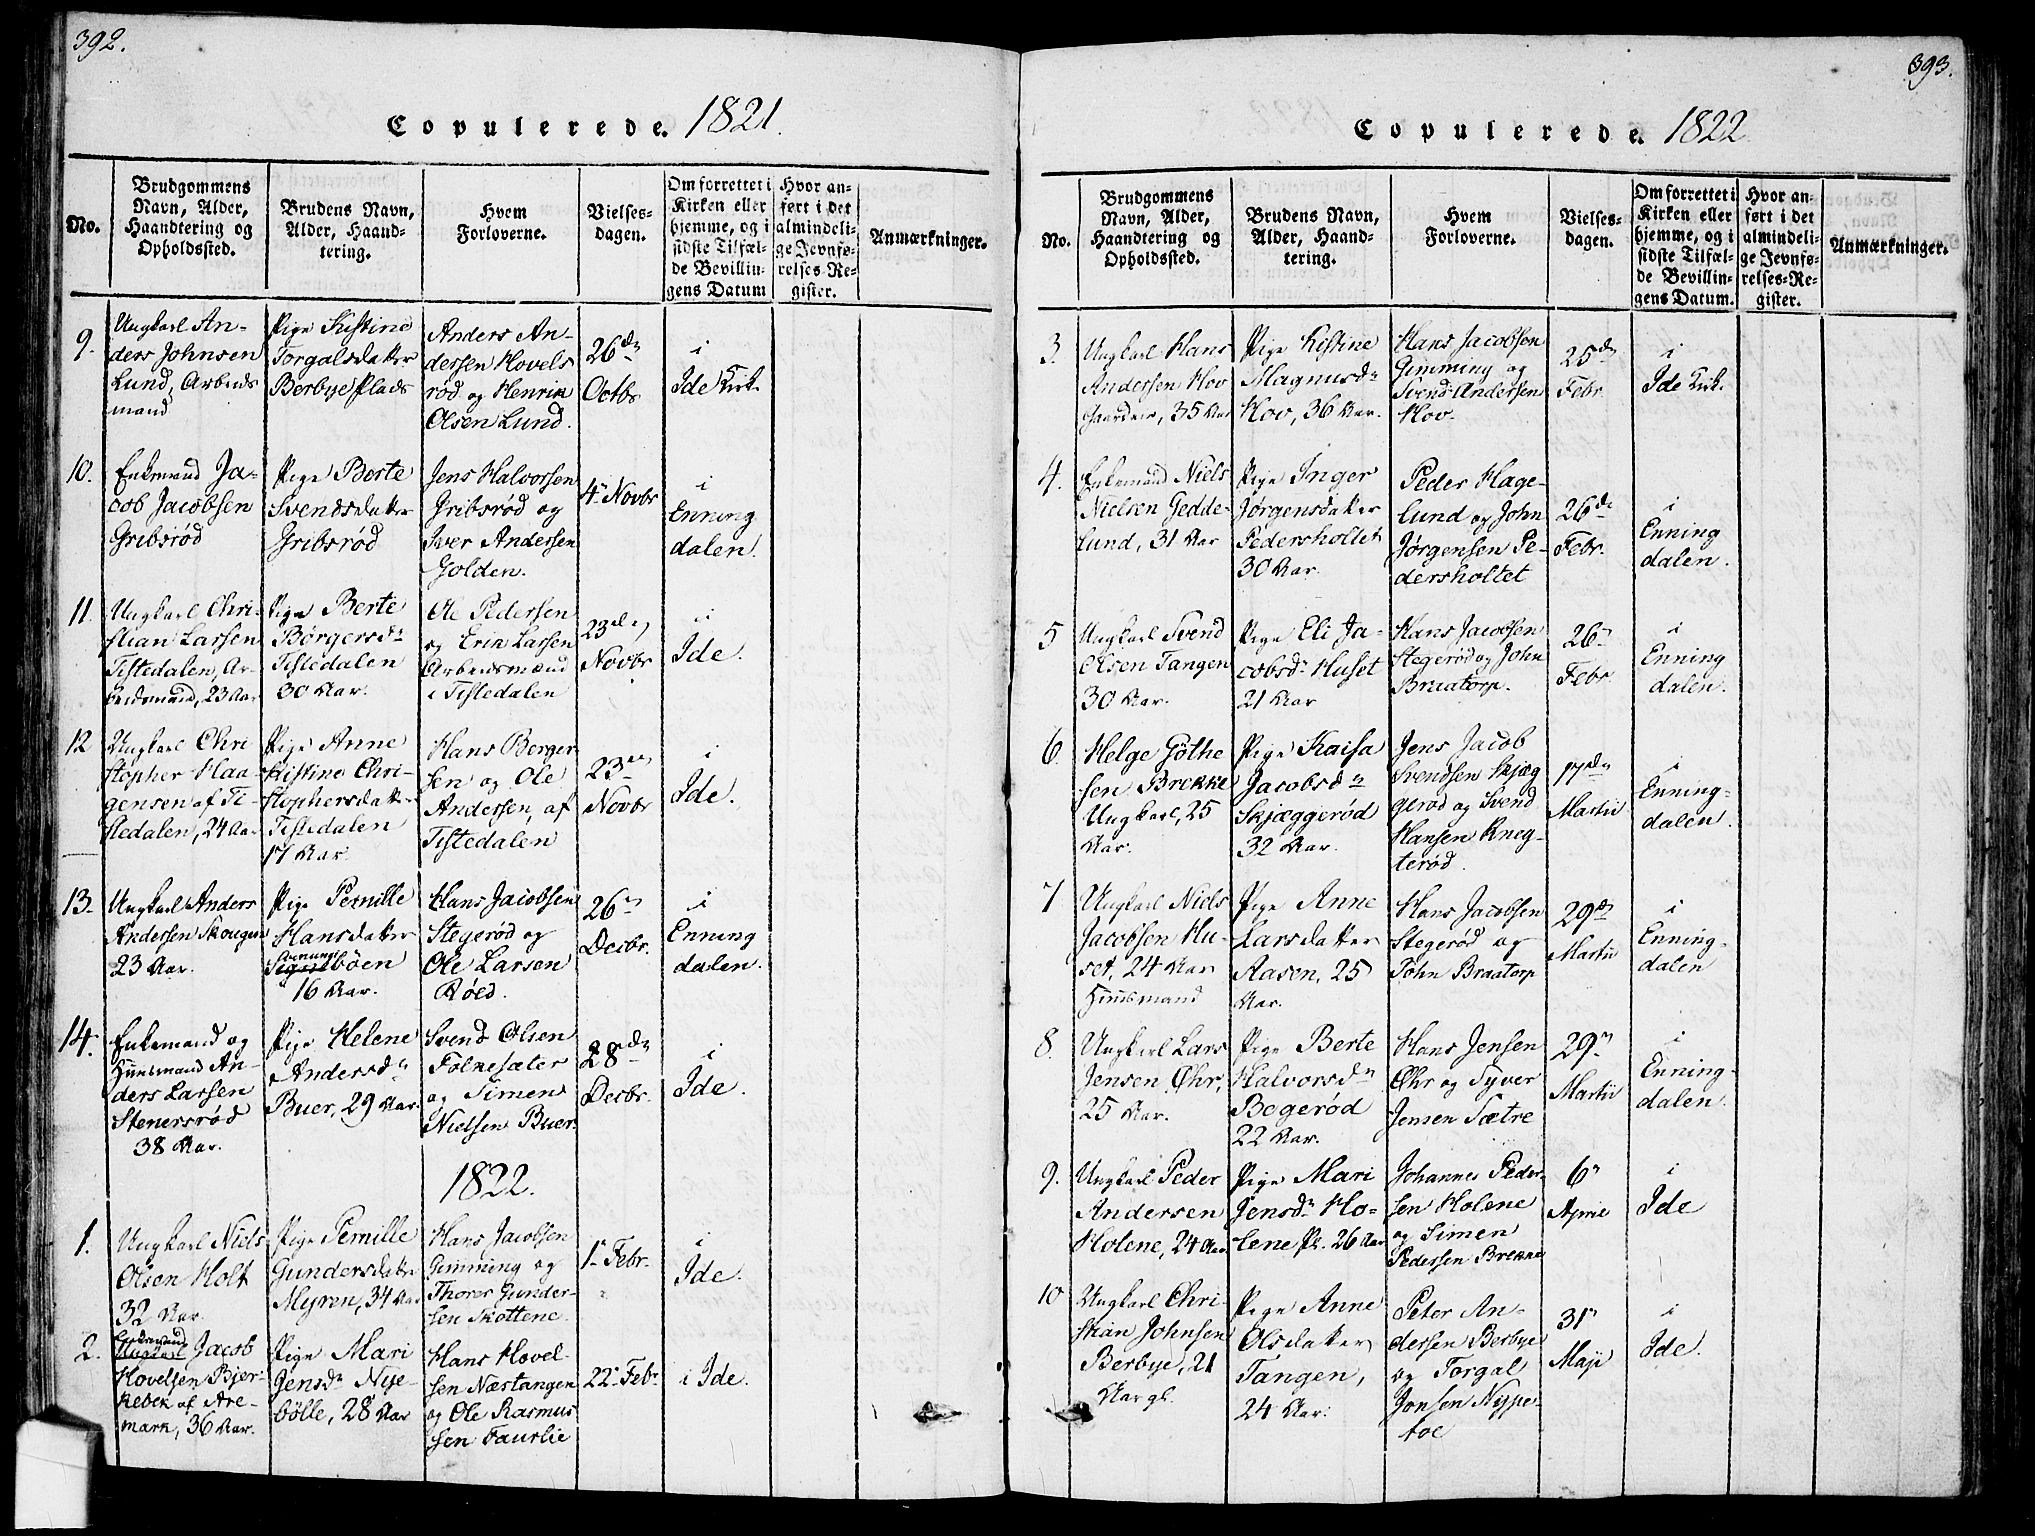 392.
Copulerede. 1821.
No.
Brudgommens
Navn, Alder,
Haandtering og
Opholdssted.
Brudens Navn,
Alder, Haand-
tering.
Hvem
Forloverne.
Vielses-
dagen.
Om forrettet i
Kirken eller
hjemme, og i
sidste Tilfæl-
de Bevillin-
gens Datum
Hvor an-
ført i det
almindeli-
ge Jevnfø-
relses-Re-
gister.
Anmærkninger.
9.
Ungkarl An-
ders Johnsen
Lund, Arbeids
mand
Pige Kistine
Torgalsdatter
Berbye Plads
Anders An-
dersen Hovels
rød og Henrik
Olsen Lund.
26de
Octbr
i
Ide Kirk.
10.
Enkemand Ja-
cob Jacobsen
Gribsrød
Pige Berte
Svendsdatter
Gribsrød
Jens Halvorsen
Gribsrød og
Iver Andersen
Golden.
4 Novbr
i
Enning
dalen.
11.
Ungkarl Chri-
stian Larsen
Tistedalen, Ar-
beidsmand, 23 Aar
Pige Berte
Børgersdr
Tistedalen
30 Aar.
Ole Pedersen
og Erik Larsen
Arbeidsmænd
i Tistedalen
23de
Novbr
i
Ide.
12
Ungkarl Chri
stopher Haa-
gensen af Ti-
stedalen, 24 Aar
Pige Anne
Kistine Chri-
stophersdatter
Tistedalen
17 Aar.
Hans Berger
sen og Ole
Andersen, af
Tistedalen
23de
Novbr
i
Ide.
13.
Ungkarl Anders
Andersen Skougen
23 Aar.
Pige Pernille
Hansdatter
bøen
16 Aar.
Hans Jacobsen
Stegerød og
Ole Larsen
Røed.
26
Decbr.
i
Enning
dalen.
14.
Enkemand og
Huusmand An-
ders Larsen
Stenersrød
38 Aar.
Pige Helene
Andersdr
Buer, 29 Aar.
Svend Olsen
Folkesæter
og Simen
Nielsen Buer.
28de
Decbr.
i
Ide.
1822.
1.
Ungkarl Niels
Olsen Holt
32 Aar.
Pige Pernille
Gundersdatter
Myren, 34 Aar
Hans Jacobsen
Gimming og
Thorer Gunder-
sen Skottene.
1 Febr.
i
Ide.
2.
Enkemand
Ungkarl Jacob
Hovelsen Bjer-
kebek af Are-
mark, 36 Aar.
Pige Mari
Jensdr Nye-
bølle, 28 Aar
Hans Hovel-
sen Næstangen
og Ole Rasmus
sen Faurlie
22 Febr
i Ide.
393.
Copulerede. 1822
No.
Brudgommens
Navn, Alder,
Haandtering og
Opholdssted.
Brudens Navn,
Alder, Haand-
tering.
Hvem
Forloverne.
Vielses-
dagen.
Om forrettet i
Kirken eller
hjemme, og i
sidste Tilfæl-
de Bevillin-
gens Datum.
Hvor an-
ført i det
almindeli-
ge Jevnfø-
relses-Re-
gister.
Anmærkninger.
3.
Ungkarl Hans
Andersen Hov
Gaardmr, 35 Aar
Pige Kistine
Magnusdr
Hov, 36 Aar.
Hans Jacobsen
Gimming og
Svend Andersen
Hov.
25de
Febr.
i
Ide Kirk.
4.
Enkemand Niels
Nielsen Gedde-
lund, 31 Aar
Pige Inger
Jørgensdatter
Pedersholtet
30 Aar.
Peder Hage-
lund og John
Jørgensen Pe-
dersholtet
26de
Febr.
i
Enning
dalen.
5
Ungkarl Svend
Olsen Tangen
30 Aar.
Pige Eli Ja-
cobsdr Huset
21 Aar
Hans Jacobsen
Stegerød og John
Braatorp.
26
Febr.
i
Enning
dalen.
6.
Helge Göthe
sen Brekke
Ungkarl, 25
Aar.
Pige Kaisa
Jacobsdr
Skjæggerød
32 Aar.
Jens Jacob
Svendsen Skjæg
gerød og Svend
Hansen Kneg-
terød.
17de
Martii
i
Enning-
dalen.
7
Ungkarl Niels
Jacobsen Hu-
set, 24 Aar
Huusmand
Pige Anne
Larsdatter
Aasen, 25
Aar.
Hans Jacobsen
Stegerød og
John Braatorp
29de
Martii
i
Enning-
dalen
8.
Ungkarl Lars
Jensen Øhr,
25 Aar.
Pige Berte
Halvorsdr
Begerød
22 Aar.
Hans Jensen
Øhr og Syver
Jensen Sætre
29
Martii
i
Enning-
dalen.
9.
Ungkarl Peder
Andersen
Holene, 24 Aar
Pige Mari
Jensdr Ho-
lene Pl. 26 Aar
Johannes Peder-
sen Holene
og Simen
Pedersen Brekke
6
April
i
Ide
10
Ungkarl Chri-
stian Johnsen
Berbye, 21
Aar gl.
Pige Anne
Olsdatter
Tangen,
24 Aar.
Peter An-
dersen Berbye
og Torgal
Jonsen Nype-
toe
31
Maji
i
Ide.